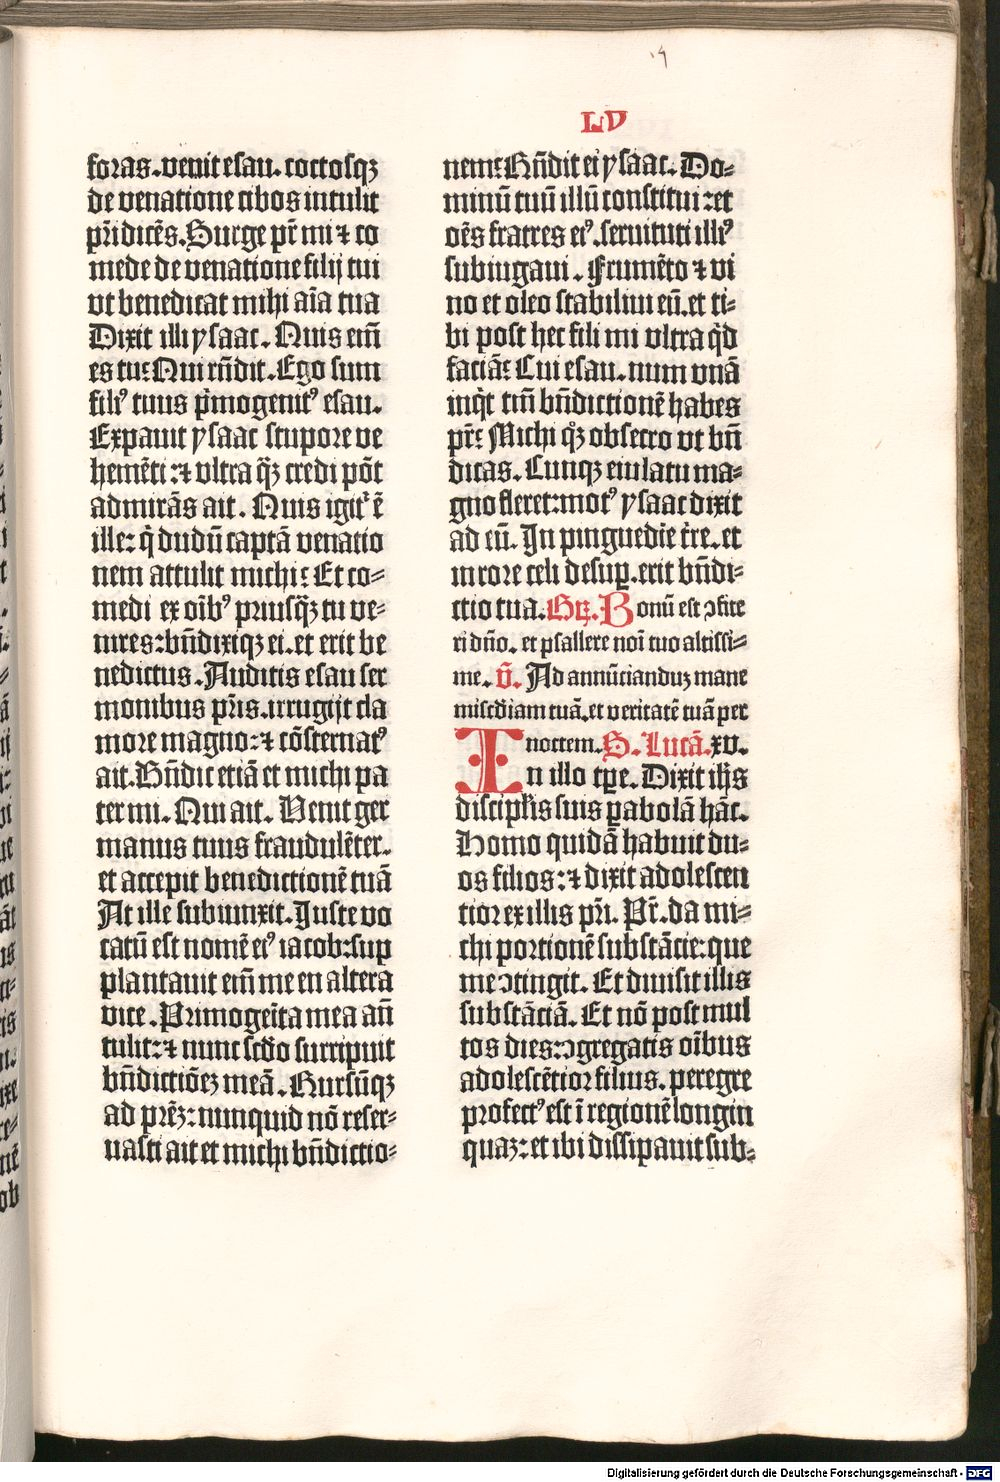 LV
foras. venit esau. coctosqꝫ
de venatione cibos intulit
pr̄i dicēs. Surge pr̄ mi ⁊ co
mede de venatione filij tui
vt benedicat mihi aīa tua
Dixit illi ysaac. Quis em̄
es tu: Qui rn̄dit. Ego sum
filiꝰ tuus pͥmogenitꝰ esau.
Expauit ysaac stupore ve
hemēti: ⁊ vltra qͣ̈ꝫ credi pōt
admirās ait. Quis igitͬ ē
ille: qͥ dudū captā venatio
nem attulit michi: Et co⸗
medi ex oībꝰ priusqͣꝫ tu ve⸗
nires: bn̄dixiqꝫ ei. et erit be
nedictus. Auditis esau ser
monibus pr̄is. irrugijt cla
more magno: ⁊ cōsternatꝰ
ait. Bn̄dic etiā et michi pa
ter mi. Qui ait. Venit ger
manus tuus fraudulēter.
et accepit benedictionē tuā
At ille subiunxit. Juste vo
catū est nomē eiꝰ iacob: sup
plantauit em̄ me en altera
vice. Primogeīta mea an̄
tulit: ⁊ nunc scd̄o surripuit
bn̄dictiōeꝫ meā. Rursūqꝫ
ad prēꝫ: nunquid nō reser⸗
uasti ait et michi bn̄dictio⸗
nem: Rn̄dit ei ysaac. Do⸗
minū tuū illū constitui: et
oēs fratres eiꝰ. seruituti illiꝰ
subiugaui. Frumēto ⁊ vi
no et oleo stabiliui eū. et ti⸗
bi post hec fili mi vltra qͥd
faciā: Cui esau. num vnā
inqͥt tm̄ bn̄dictionē habes
pr̄: Michi qͦꝫ obsecro vt bn̄
dicas. Cunqꝫ eiulatu ma⸗
gno fleret: motꝰ ysaac dixit
ad eū. In pinguedīe tr̄e. et
in rore celi desuꝑ. erit bn̄di⸗
ctio tua. Gꝶ. Bonū est ↄfite
ri dn̄o. et psallere noī tuo altissi⸗
me. v̄. Ad annūcianduꝫ mane
misc̄diam tuā. et veritatē tuā per
noctem. S. Lucā. xv.
In illo tꝑe. Dixit ih̄s
discipl̄is suis ꝑabolā hāc.
Homo quidā habuit du⸗
os filios: ⁊ dixit adolescen
tior ex illis pr̄i. Pr̄. da mi⸗
chi portionē substācie: que
me ↄtingit. Et diuisit illis
substāciā. Et nō post mul
tos dies: ↄgregatis oībus
adolescētior filius. peregre
profectꝰ est ī regionē longin
quaꝫ: et ibi dissipauit sub⸗
Digitalisierung gefördert durch die Deutsche Forschungsgemeinschaft - DFG